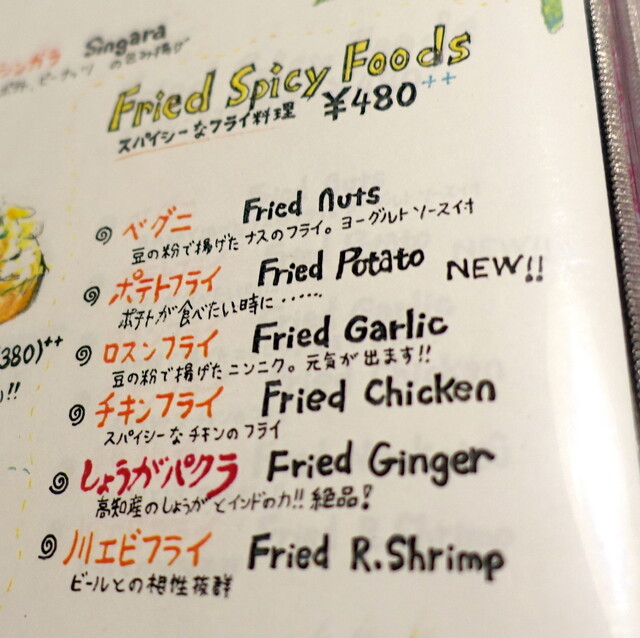 シンガラ Singara
Fried Spicy Foods
スパイシーなフライ料理 ¥480++
ベグニ Fried nuts
豆の粉で揚げた ナスのフライ。ヨーグルトソース付
ポテトフライ Fried Potato NEW!!
ポテトが食べたい時に・・・・・・
380)++
ロスンフライ Fried Garlic
豆の粉で揚げた ニンニク。元気が出ます!!
!!
チキンフライ Fried Chicken
スパイシーな チキンのフライ
しょうがパクラ Fried Ginger
高知産のしょうがとインドの力!! 絶品!
川エビフライ Fried R.Shrimp
ビールとの相性抜群